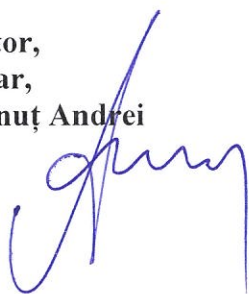 tor,
ar,
nuț Andrei